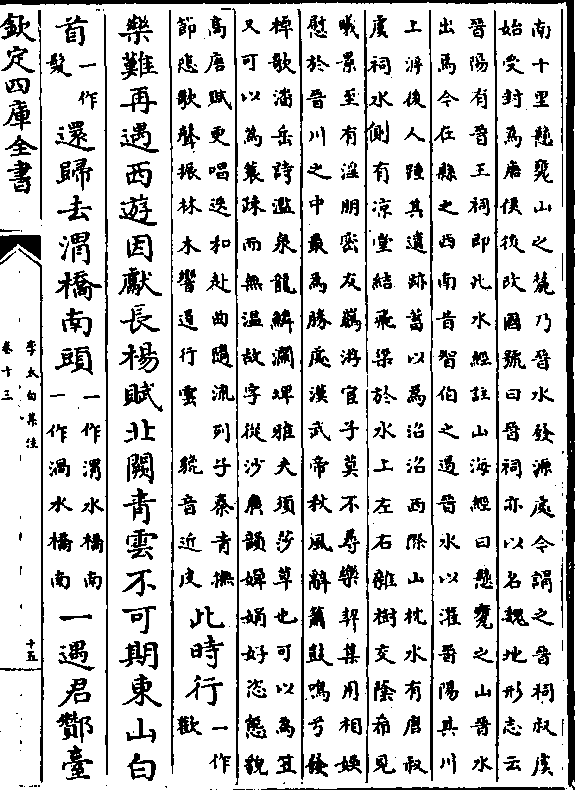 南十里懸甕山之麓乃晉水發源處今謂之晉祠叔虞
始受封為唐侯後改國號曰晉祠亦以名魏地形志云
晉陽有晉王祠即此水經註山海經曰懸甕之山晉水
出焉今在縣之西南昔智伯之遏晉水以灌晉陽其川
上泝後人踵其遺跡蓄以為沼沼西際山枕水有唐叔
虞祠水側有凉堂結飛梁於水上左右雜樹交蔭希見
曦景至有淫朋密友羈游宦子莫不尋樂契集用相娛
慰於晉川之中最為勝處漢武帝秋風辭簫鼓鳴兮發
棹歌潘岳詩濫泉龍鱗瀾埤雅夫須莎草也可以為笠
又可以為簑疎而無温故字從沙廣韻嬋娟好恣態貌
高唐賦更唱迭和赴曲隨流列子秦青撫
節悲歌聲振林木響遏行雲 音近皮
此時行一作歡
樂難再遇西遊因獻長楊賦北闕青雲不可期東山白
首一作髮還歸去渭橋南頭一作渭水橋南一作渦水橋南一遇君酇臺
欽定四庫全書
李太白集注
卷十三
十五